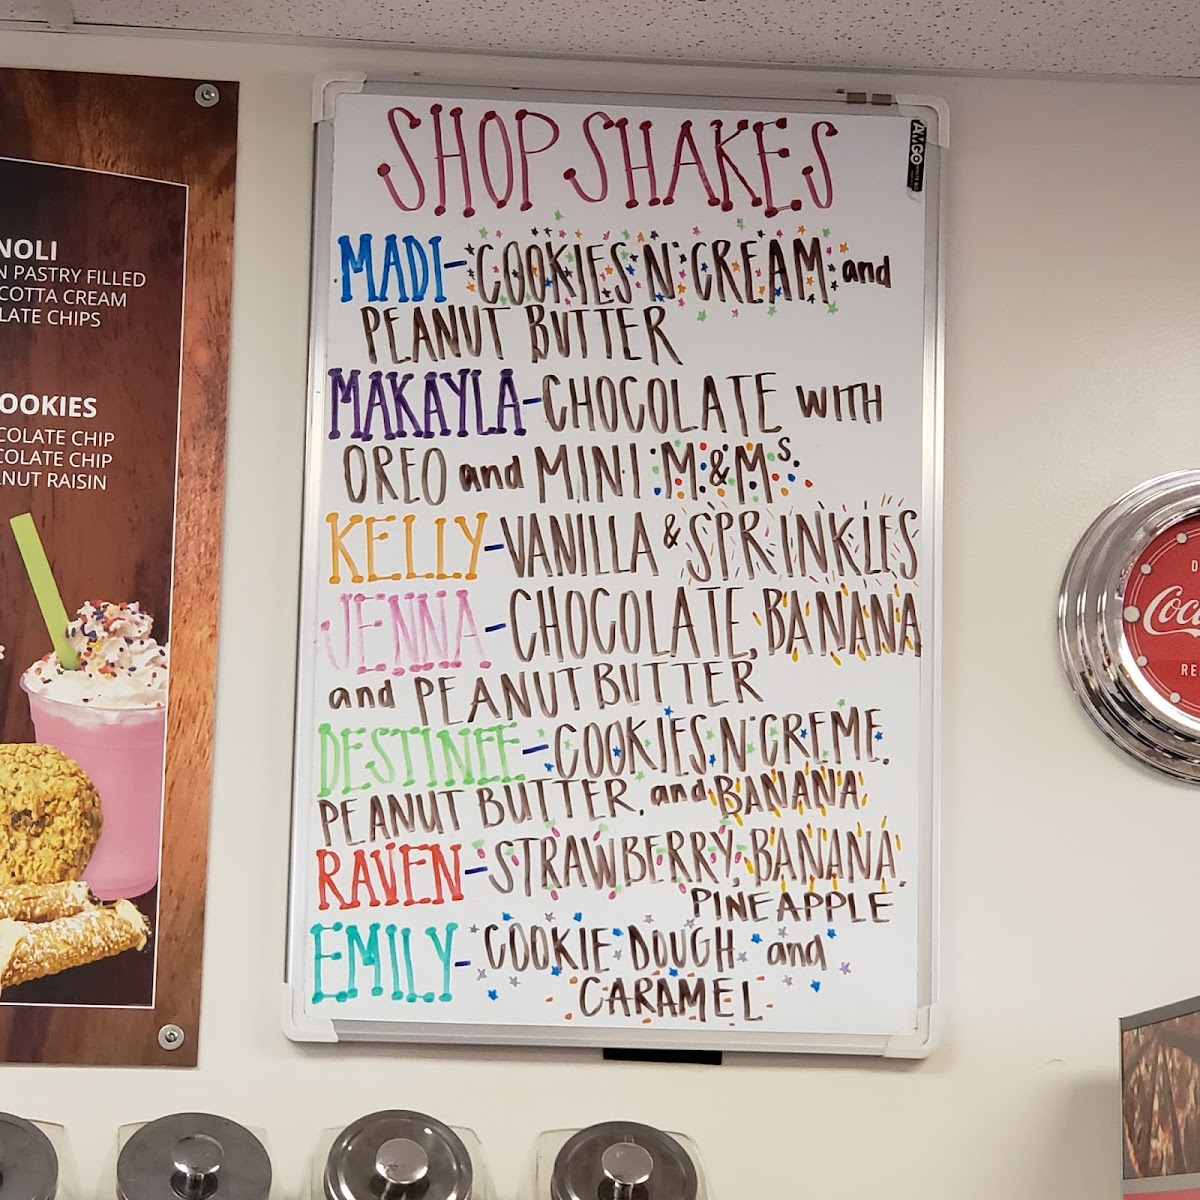 SHOP SHAKES
MADI- COOKIES N' CREAM and
PEANUT BUTTER
MAKAYLA-CHOCOLATE WITH
OREO and MINI M&Ms.
KELLY-VANILLA & SPRINKLES
JENNA-CHOCOLATE, BANANA
and PEANUT BUTTER
DESTINEE-COOKIES N' CREME,
PEANUT BUTTER, and BANANA
RAVEN-STRAWBERRY, BANANA,
PINEAPPLE
EMILY- COOKIE DOUGH and
CARAMEL
AMGO
NOLI
N PASTRY FILLED
COTTA CREAM
LATE CHIPS
OOKIES
COLATE CHIP
COLATE CHIP
NUT RAISIN
D
Coc
RE